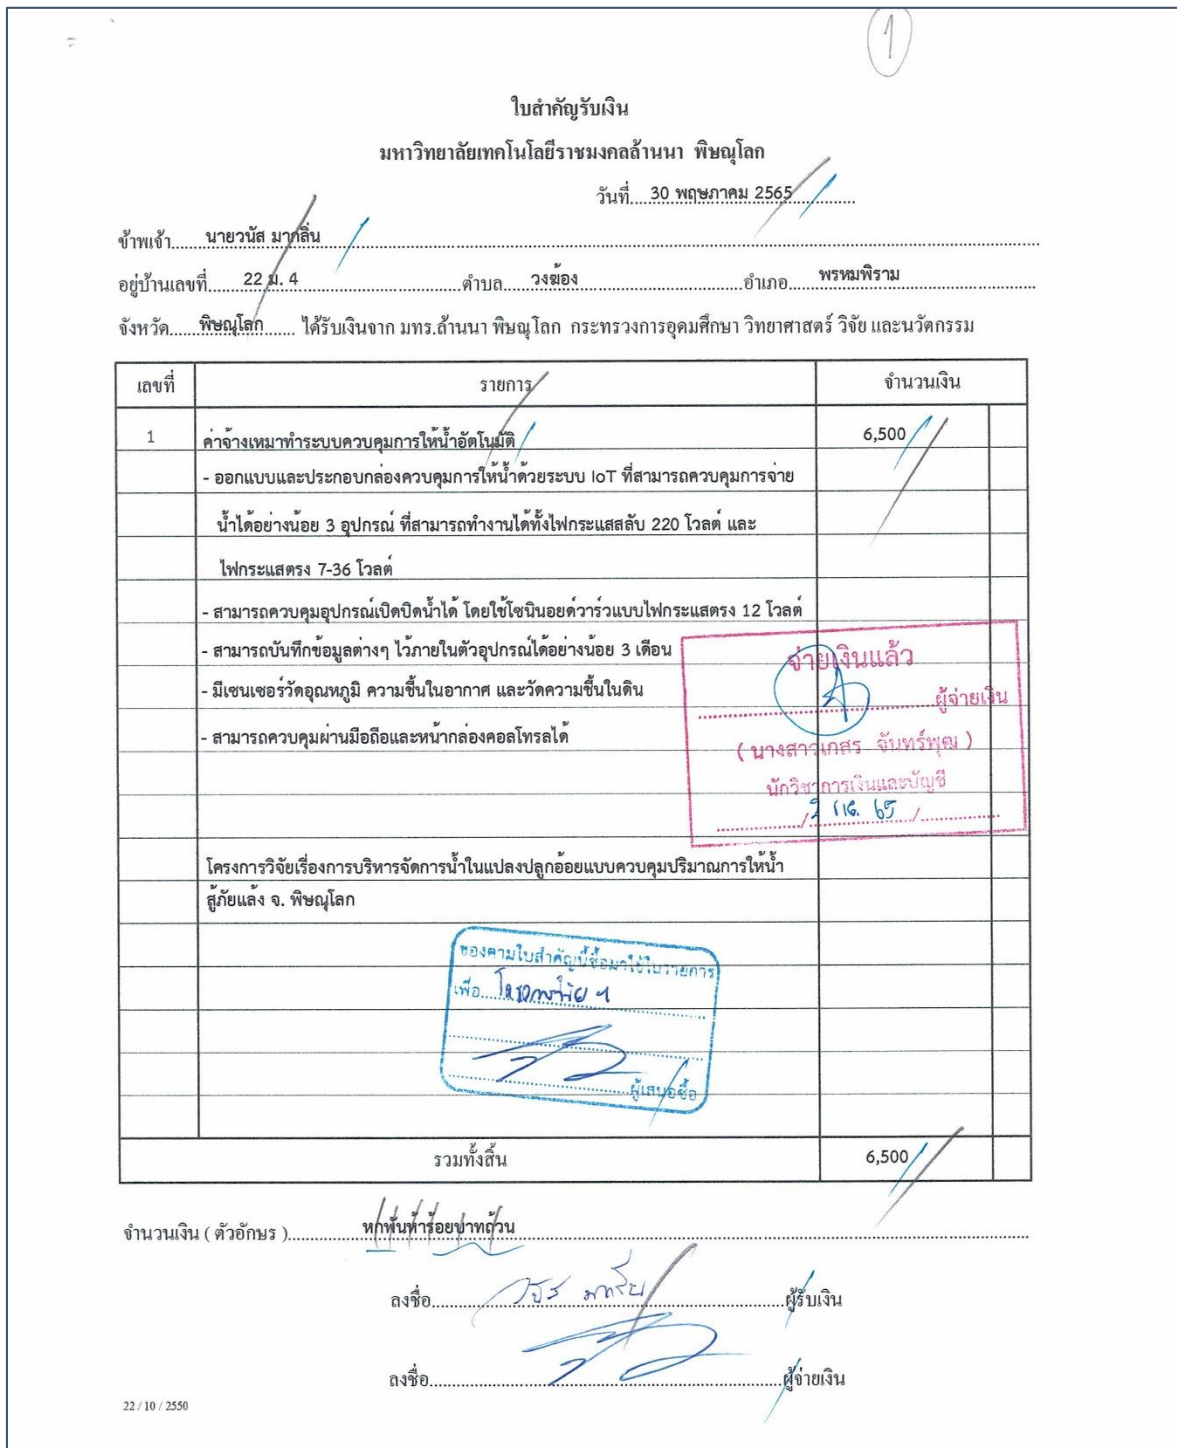 1
ใบสำคัญรับเงิน
มหาวิทยาลัยเทคโนโลยีราชมงคลล้านนา พิษณุโลก
วันที่....30 พฤษภาคม 2565............
ข้าพเจ้า......นายวนัส มากลิ่น......
อยู่บ้านเลขที่......22 ม. 4......ตำบล......วงฆ้อง......อำเภอ......พรหมพิราม......
จังหวัด......พิษณุโลก...... ได้รับเงินจาก มทร.ล้านนา พิษณุโลก กระทรวงการอุดมศึกษา วิทยาศาสตร์ วิจัย และนวัตกรรม
เลขที่ รายการ จำนวนเงิน
1 ค่าจ้างเหมาทำระบบควบคุมการให้น้ำอัตโนมัติ 6,500
- ออกแบบและประกอบกล่องควบคุมการให้น้ำด้วยระบบ IoT ที่สามารถควบคุมการจ่าย
น้ำได้อย่างน้อย 3 อุปกรณ์ ที่สามารถทำงานได้ทั้งไฟกระแสสลับ 220 โวลต์ และ
ไฟกระแสตรง 7-36 โวลต์
- สามารถควบคุมอุปกรณ์เปิดปิดน้ำได้ โดยใช้โซนินอยด์วาร์วแบบไฟกระแสตรง 12 โวลต์
- สามารถบันทึกข้อมูลต่างๆ ไว้ภายในตัวอุปกรณ์ได้อย่างน้อย 3 เดือน
- มีเซนเซอร์วัดอุณหภูมิ ความชื้นในอากาศ และวัดความชื้นในดิน
- สามารถควบคุมผ่านมือถือและหน้ากล่องคอลโทรลได้
จ่ายเงินแล้ว
......ผู้จ่ายเงิน
( นางสาวเกสร จันทร์พุฒ )
นักวิชาการเงินและบัญชี
โครงการวิจัยเรื่องการบริหารจัดการน้ำในแปลงปลูกอ้อยแบบควบคุมปริมาณการให้น้ำ
สู้ภัยแล้ง จ. พิษณุโลก
ของตามใบสำคัญนี้ซื้อมาใช้ในรายการ
เพื่อ...โครงการวิจัย ฯ
......ผู้เสนอซื้อ
รวมทั้งสิ้น 6,500
จำนวนเงิน ( ตัวอักษร )......หกพันห้าร้อยบาทถ้วน......
ลงชื่อ......วนัส มากลิ่น......ผู้รับเงิน
ลงชื่อ......ผู้จ่ายเงิน
22 / 10 / 2550